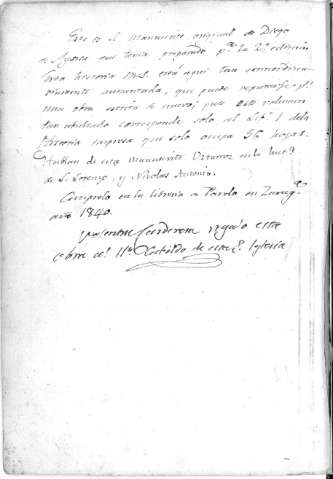 Este es el Manuscrito original de Diego
de Aynsa que tenia preparado p.ª la 2.ª edicion
Esta historia M.S. está aqui tan extraordina-
riamente aumentada, que puede reputarse p.r
una obra escrita de nuevo; pues este volumen
tan abultado corresponde solo al Lib.º I de la
Historia impresa que solo ocupa 56 hojas.
Hablan de este manuscrito en la
de S. Lorenzo, y Nicolas Antonio.
Comprolo en la libreria de en Zarag.ª
año 1840.
regaló esta
obra al Il.e Cabildo de esta S. Iglesia